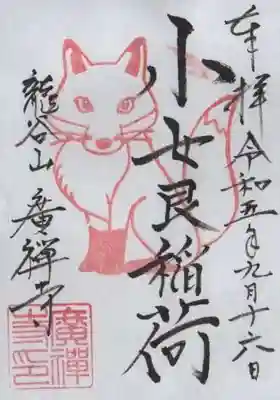 奉拝 令和五年九月十六日
小女良稲荷
龍谷山 廣禅寺
廣禅
寺印